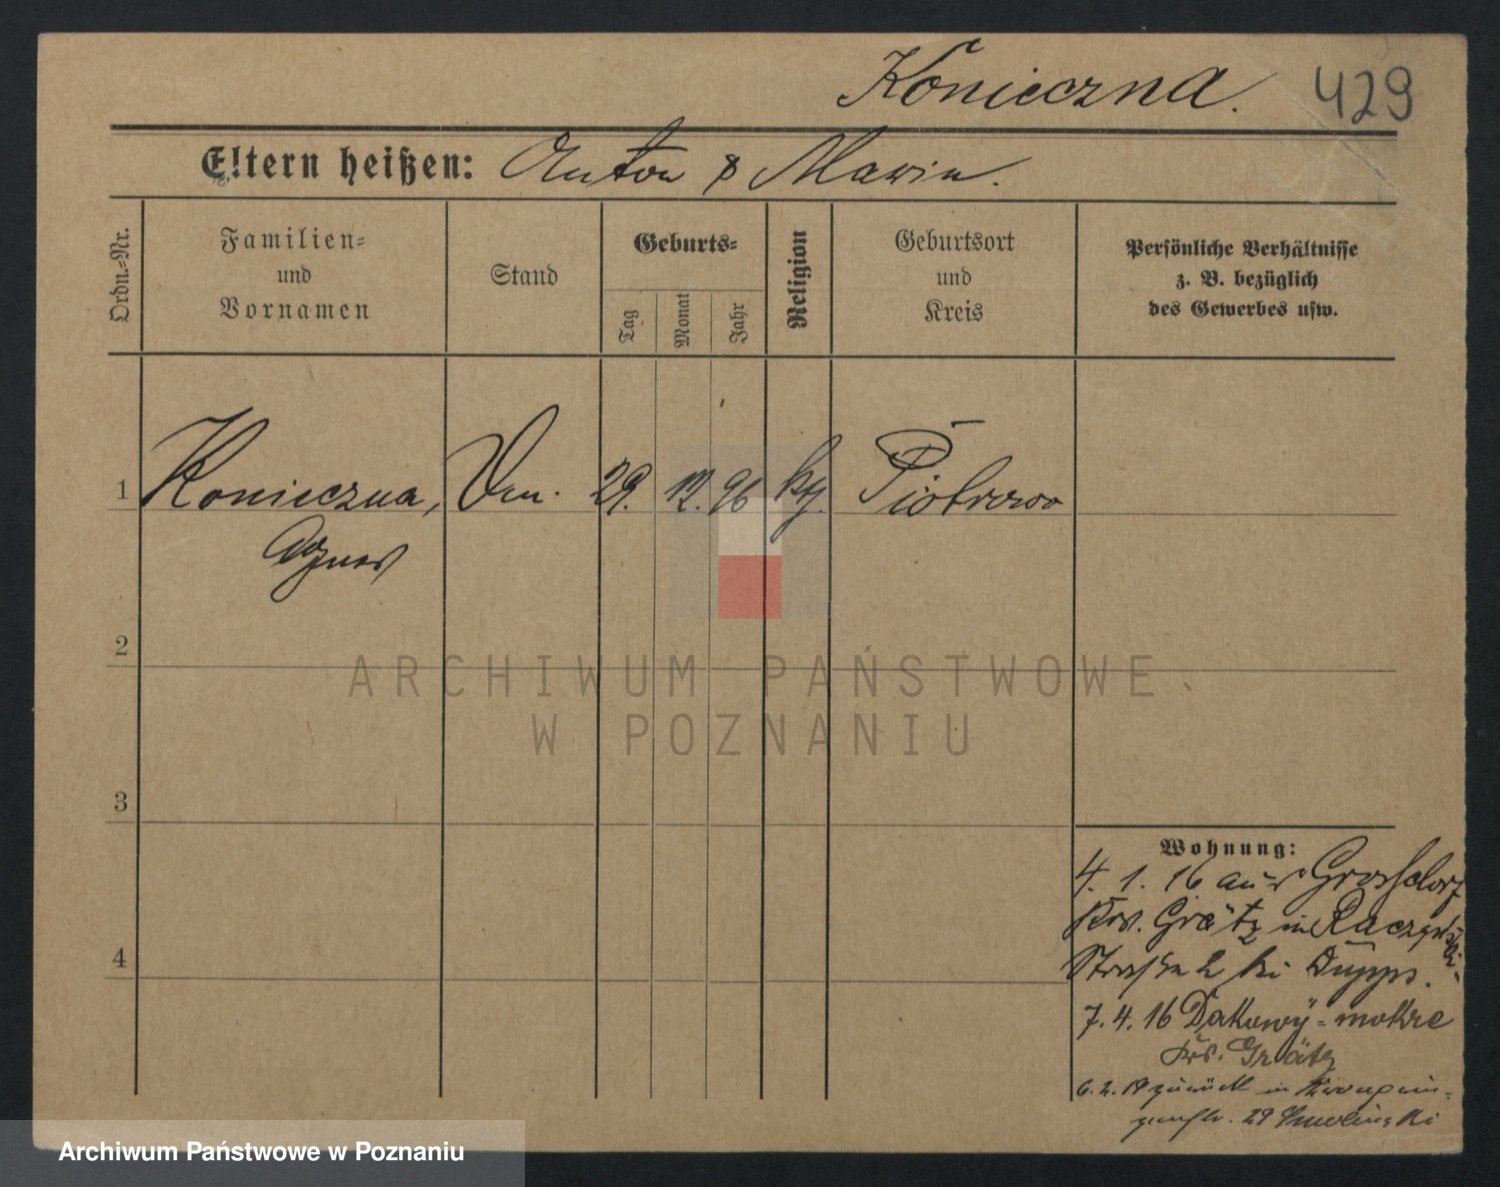 Konieczna. 429
Eltern heißen: Anton & Maria.
Ordn.-Nr.
Familien-
und
Vornamen
Stand
Geburts-
Tag
Monat
Jahr
Religion
Geburtsort
und
Kreis
Persönliche Verhältnisse
z. B. bezüglich
des Gewerbes usw.
1 Konieczna, 29. 12. 96 Piotrowo
Agnes
2
3
4
Wohnung:
4. 1. 16 aus Grossdorf
Krs. Grätz in Raczynski-
Straße 2 bei
7. 4. 16 Dakowy-mokre
Krs. Grätz
6. 2. 19 zurück in
29 Smolinski
ARCHIWUM PAŃSTWOWE
W POZNANIU
Archiwum Państwowe w Poznaniu